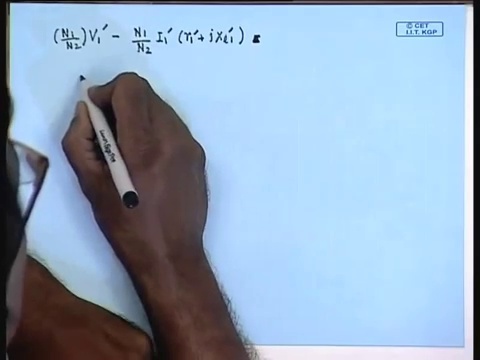 (N1/N2) V1′ − N1/N2 I1′ (r1′ + j xl1′) =
© CET
I.I.T. KGP